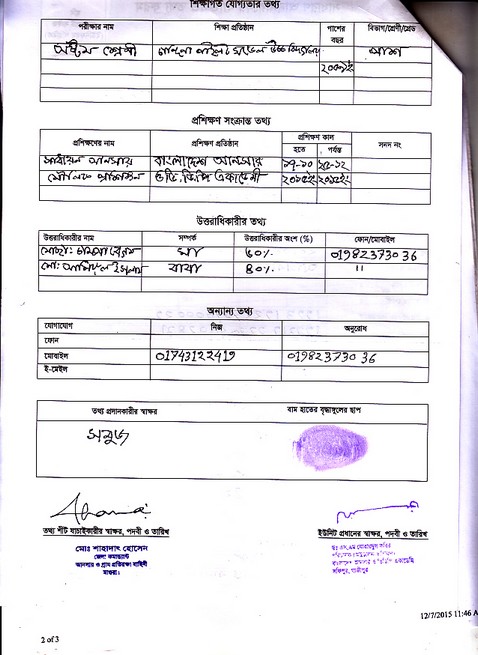 শিক্ষাগত যোগ্যতার তথ্য
পরীক্ষার নাম শিক্ষা প্রতিষ্ঠান পাশের বছর বিভাগ/শ্রেণী/গ্রেড
অষ্টম শ্রেণী উচ্চ বিদ্যালয় পাশ
প্রশিক্ষণ সংক্রান্ত তথ্য
প্রশিক্ষণের নাম প্রশিক্ষণ প্রতিষ্ঠান প্রশিক্ষণ কাল সনদ নং
হতে পর্যন্ত
সাধারন আনসার বাংলাদেশ আনসার ১৭-১০ ২৫-১২
মৌলিক প্রশিক্ষন ও ভি.ডি.পি একাডেমী
উত্তরাধিকারীর তথ্য
উত্তরাধিকারীর নাম সম্পর্ক উত্তরাধিকারীর অংশ (%) ফোন/মোবাইল
মোছা: বেগম মা ৬০% 01982373036
মো: ইসলাম বাবা ৪০% "
অন্যান্য তথ্য
যোগাযোগ নিজ অনুরোধ
ফোন
মোবাইল 01743122419 01982373036
ই-মেইল
তথ্য প্রদানকারীর স্বাক্ষর বাম হাতের বৃদ্ধাঙ্গুলের ছাপ
সবুজ
তথ্য শীট যাচাইকারীর স্বাক্ষর, পদবী ও তারিখ ইউনিট প্রধানের স্বাক্ষর, পদবী ও তারিখ
মোঃ শাহাদাৎ হোসেন
জেলা কমান্ড্যান্ট
আনসার ও গ্রাম প্রতিরক্ষা বাহিনী
মাগুরা।
সফিপুর, গাজীপুর
12/7/2015 11:46 A
2 of 3